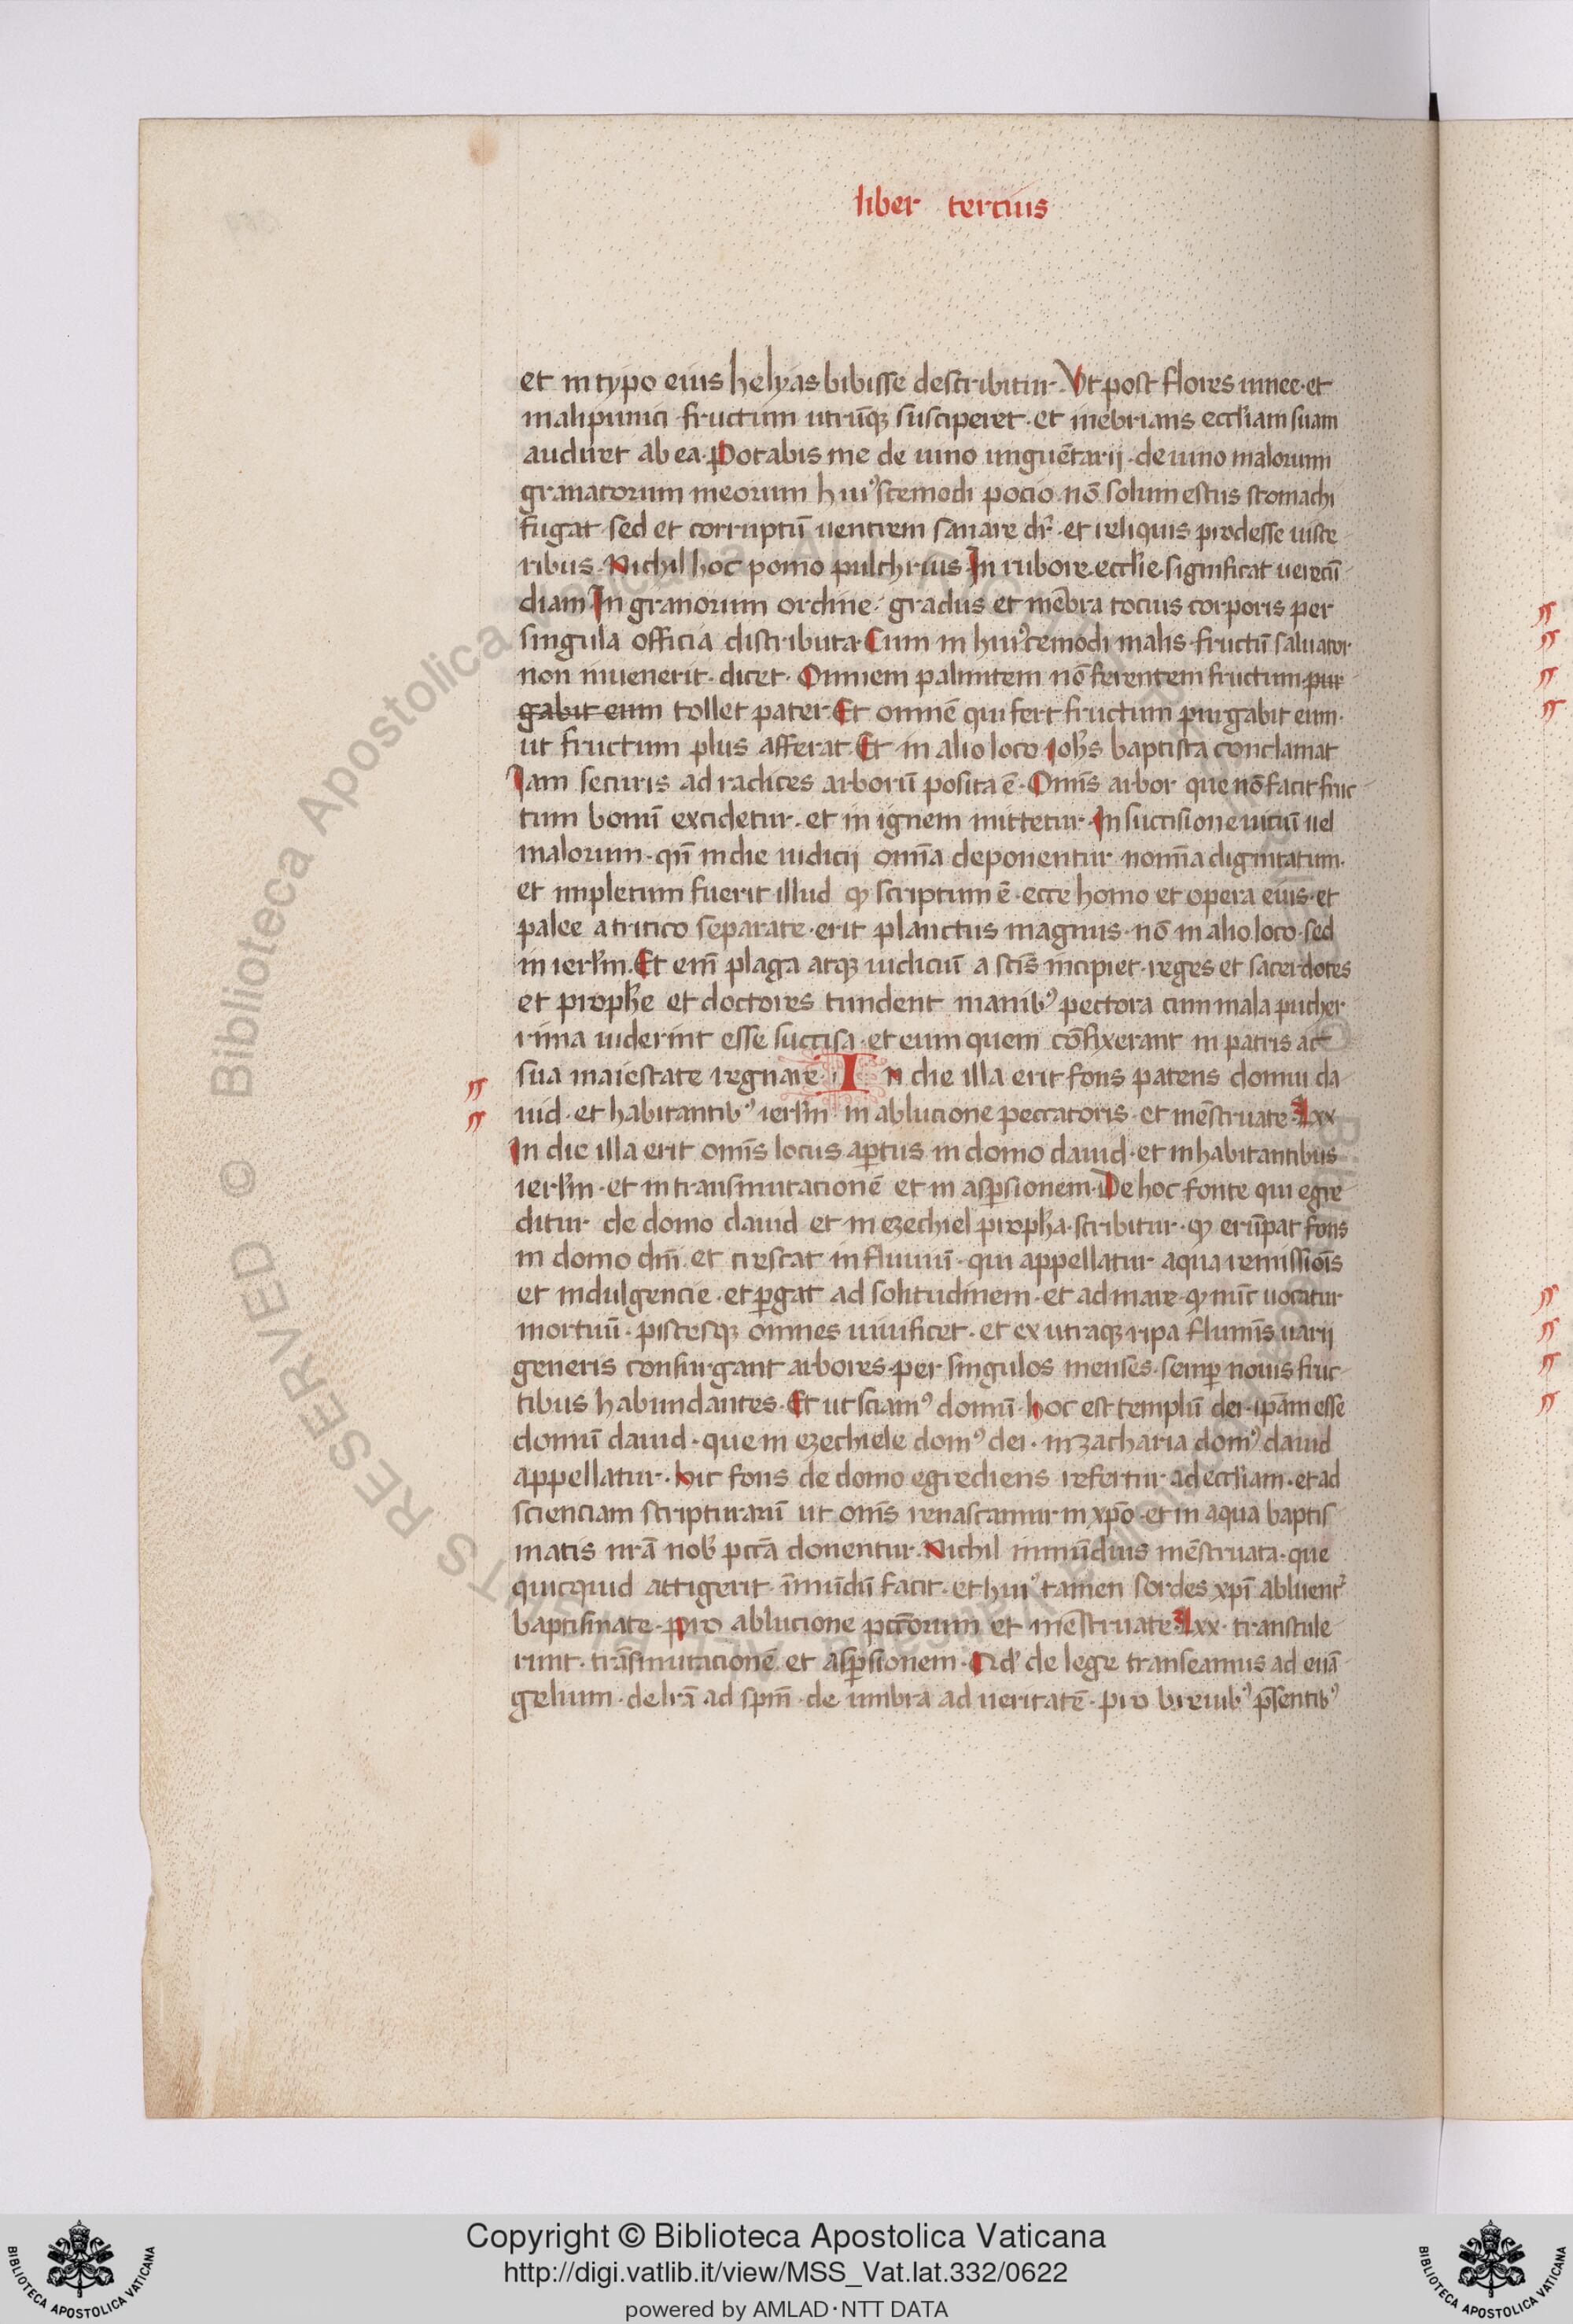 liber tercius
et in typo eius helyas bibisse describitur. Vt post flores uinee. et
malipunici fructum utrūq; susciperet. et inebrians eccl'iam suam
audiret ab ea. Potabis me de uino unguētarij. de uino malorum
granatorum meorum hui⁹scemodi pocio nō solum estus stomachi
fugat. sed et corruptū uentrem sanare dr̄. et reliquis prodesse uisce
ribus. Nichil hoc pomo pulchrius. In rubore eccl'ie significat uerecū
diam In granorum ordine. gradus et mēbra tocius corporis per
singula officia distributa. Cum in hui⁹cemodi malis. fructū saluator
non inuenerit. dicet. Omnem palmitem nō ferentem fructum pur
gabit eum tollet pater. Et omnē qui fert fructum purgabit eum.
ut fructum plus afferat. Et in alio loco Joh̄s baptista conclamat
Iam securis ad radices arborū posita ē. Om̄is arbor que nō facit fruc
tum bonū excidetur. et in ignem mittetur. In succisione uiciū uel
malorum. qn̄ in die iudicij om̄ia deponentur nomīa dignitatum.
et impletum fuerit illud qͦ scriptum ē. ecce homo et opera eius. et
palee a tritico separate. erit planctus magnus. nō in alio loco. sed
in ierl'm. Et em̄ plaga atq; iudiciū a sc̄is incipiet. reges et sacerdotes
et proph̄e et doctores tundent manib⁹ pectora cum mala pucher
rima uiderint esse succisa. et eum quem cōfixerant in patris ac
sua maiestate regnare. In die illa erit fons patens domui da
uid. et habitantib⁹ ierl'm in ablucione peccatoris. et mēstruate. Lxx
In die illa erit om̄is locus ap̱tus in domo dauid. et inhabitantibus
ierl'm. et in transmutacionē et in asp̱sionem. De hoc fonte qui egre
ditur de domo dauid et in ezechiel proph̄a. scribitur. qͦ erūpat fons
in domo dn̄i. et crescat in fluuiū. qui appellatur aqua remissiōis
et indulgencie. et p̱gat ad solitudinem. et ad mare. qͦ nūc uocatur
mortuū. piscesq; omnes uiuificet. et ex utraq; ripa flumīs uarij
generis consurgant arbores. per singulos menses. semp̱ nouis fruc
tibus habundantes. Et ut sciam⁹ domū. hoc est templū dei. ip̄am esse
domū dauid. que in ezechiele dom⁹ dei. in zacharia dom⁹ dauid
appellatur. hic fons de domo egrediens refertur ad eccl'iam. et ad
scienciam scripturarū ut om̄s renascamur in xp̄o. et in aqua baptis
matis nr̄a nob' pc̄cā donentur. Nichil immūdius mēstruata. que
quicquid attigerit. īmūdū facit. et hui⁹ tamen sordes xp̄i abluent᷑
baptismate. Pro ablucione pc̄c̄orum et mēstruate. Lxx. transtule
runt. trāsmutacionē et asp̱sionem. Qd' de lege transeamus ad euā
gelium. de lr̄ā ad spm̄. de umbra ad ueritatē. pro breuib⁹ p̄sentib⁹
Copyright © Biblioteca Apostolica Vaticana
http://digi.vatlib.it/view/MSS_Vat.lat.332/0622
powered by AMLAD·NTT DATA